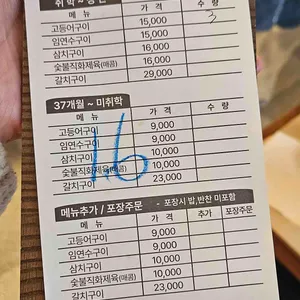 취학~성인
메 뉴 가 격 수 량
고등어구이 15,000 3
임연수구이 15,000
삼치구이 16,000
숯불직화제육(매콤) 16,000
갈치구이 29,000
37개월 ~ 미취학
메 뉴 가 격 수 량
고등어구이 9,000
임연수구이 9,000
삼치구이 10,000
숯불직화제육(매콤) 10,000
갈치구이 23,000
16
메뉴추가 / 포장주문 - 포장시 밥,반찬 미포함
메 뉴 가 격 추가 포장주문
고등어구이 9,000
임연수구이 9,000
삼치구이 10,000
숯불직화제육(매콤) 10,000
갈치구이 23,000